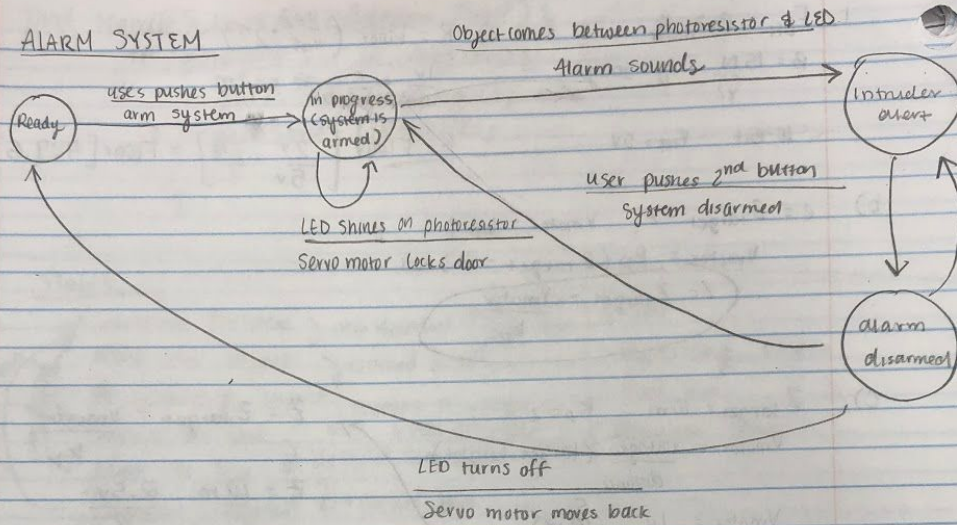 AlARM SYSTEM
Object comes between photoresistor & LED
Alarm sounds
uses pushes button
arm system
Ready
In progress
(system is
armed)
Intruder
alert
user pushes 2nd button
System disarmed
LED Shines on photoresistor
Servo motor locks door
alarm
disarmed
LED turns off
Servo motor moves back